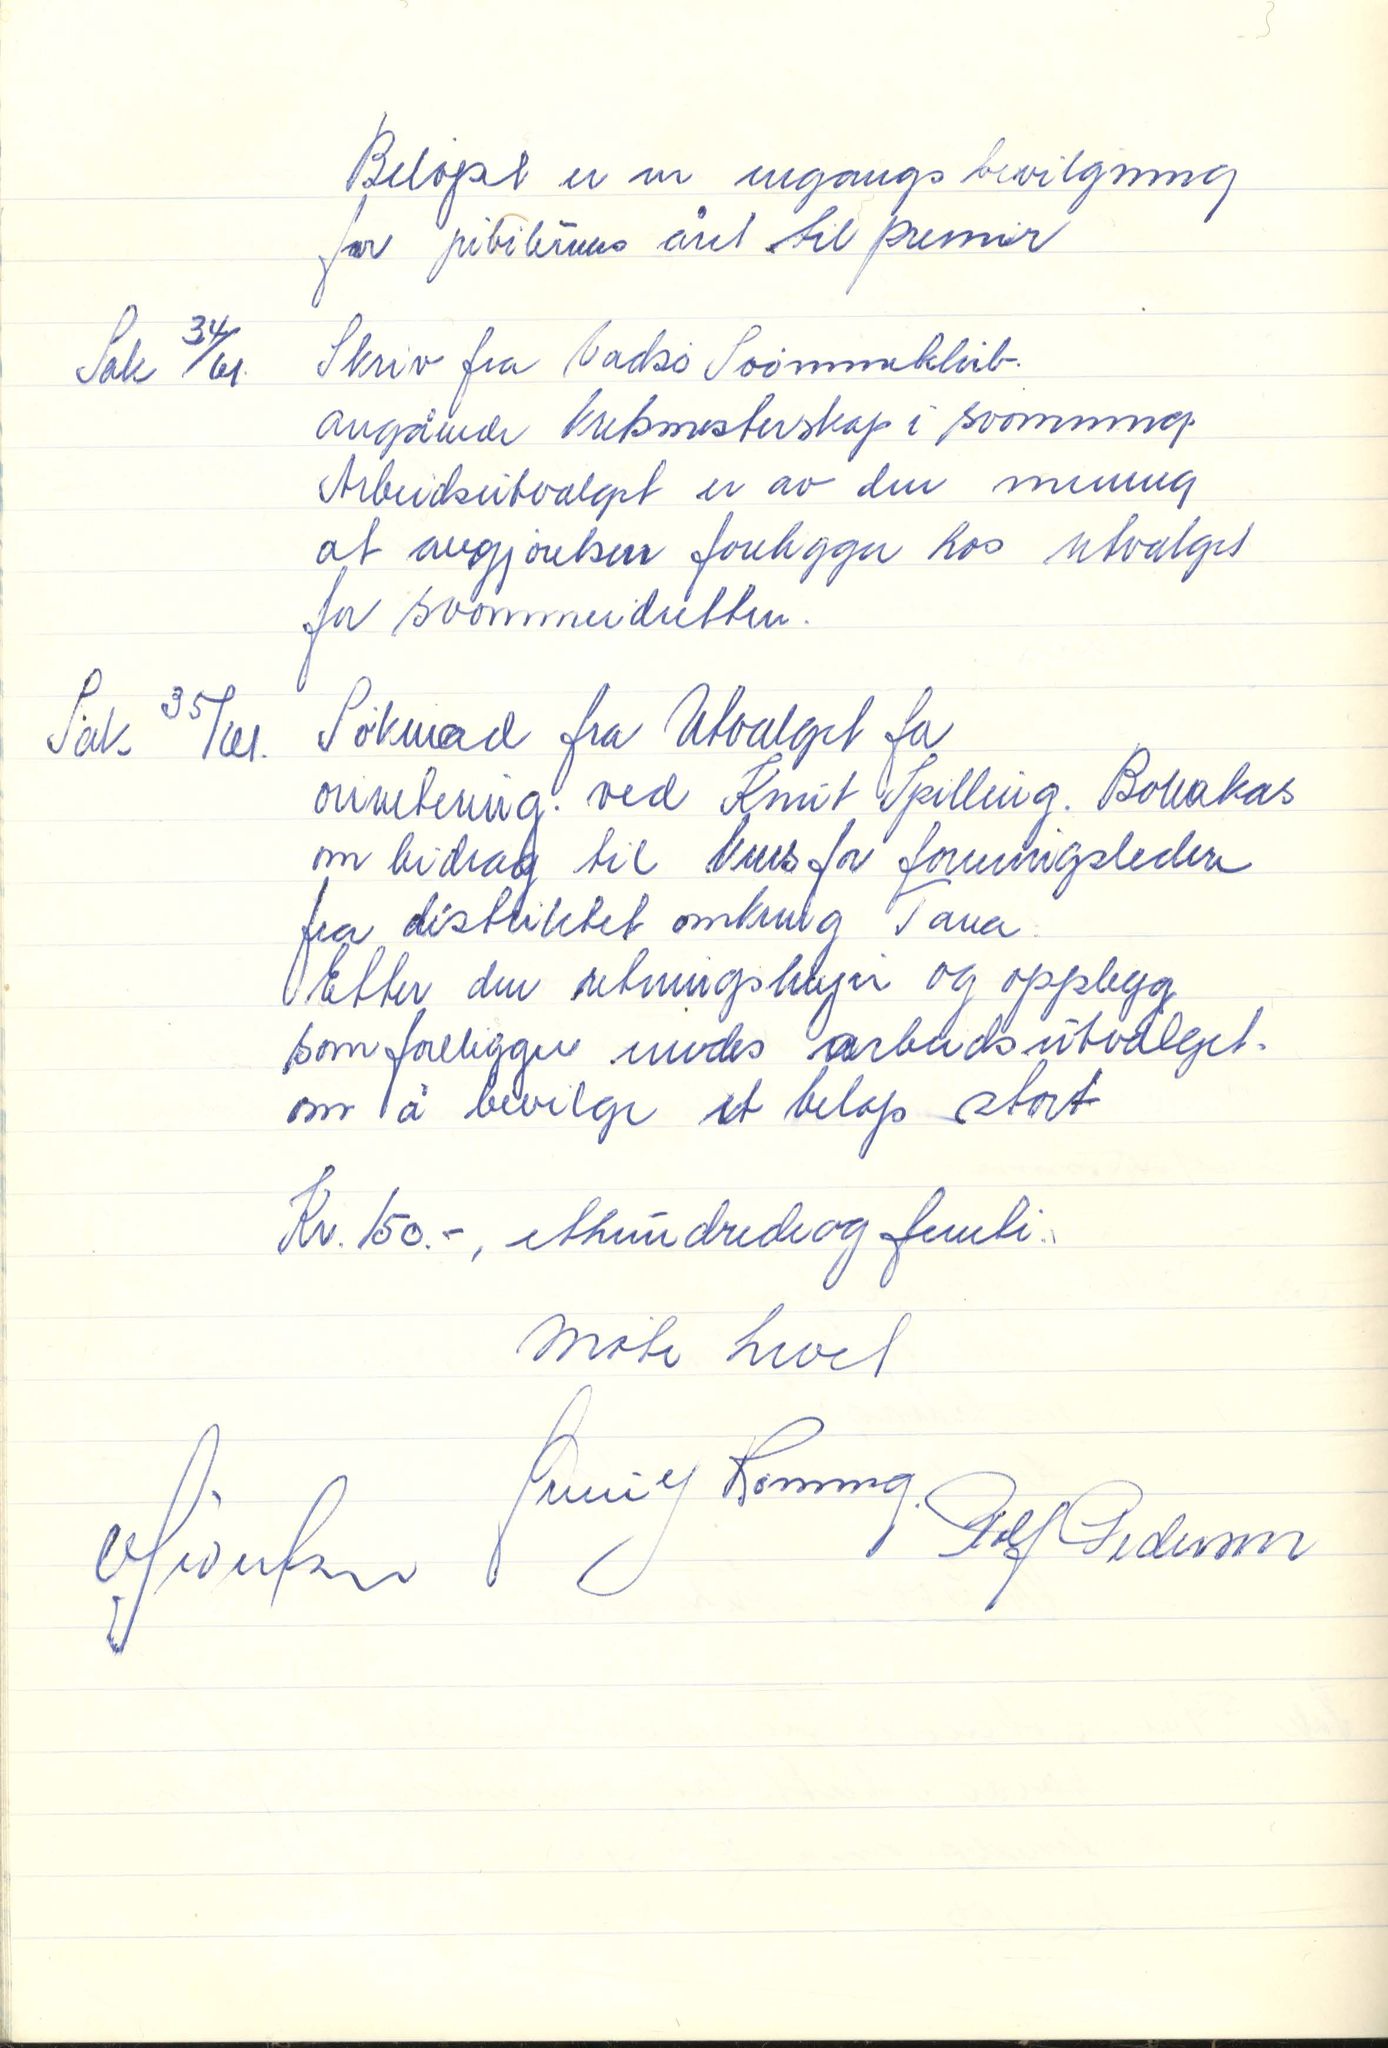 Beløpet er en engangs bevilgning
for jubileums året til premier
Sak 34/61. Skriv fra Vadsø Svømmeklub.
angående kretsmesterskap i svømming
Arbeidsutvalget er av den mening
at avgjørelsen foreligger hos utvalget
for svømmeidretten.
Sak 35/61. Søknad fra Utvalget for
orientering. ved Knut Spilling. Bonakas
om bidrag til kurs for foreningsledere
fra distriktet omkring Tana
Etter den retningslinjer og opplegg
som foreligger enedes arbeidsutvalget.
om å bevilge et beløp stort
Kr. 150.-, etthundredeogfemti..
Møte hevet
Rolf Pedersen